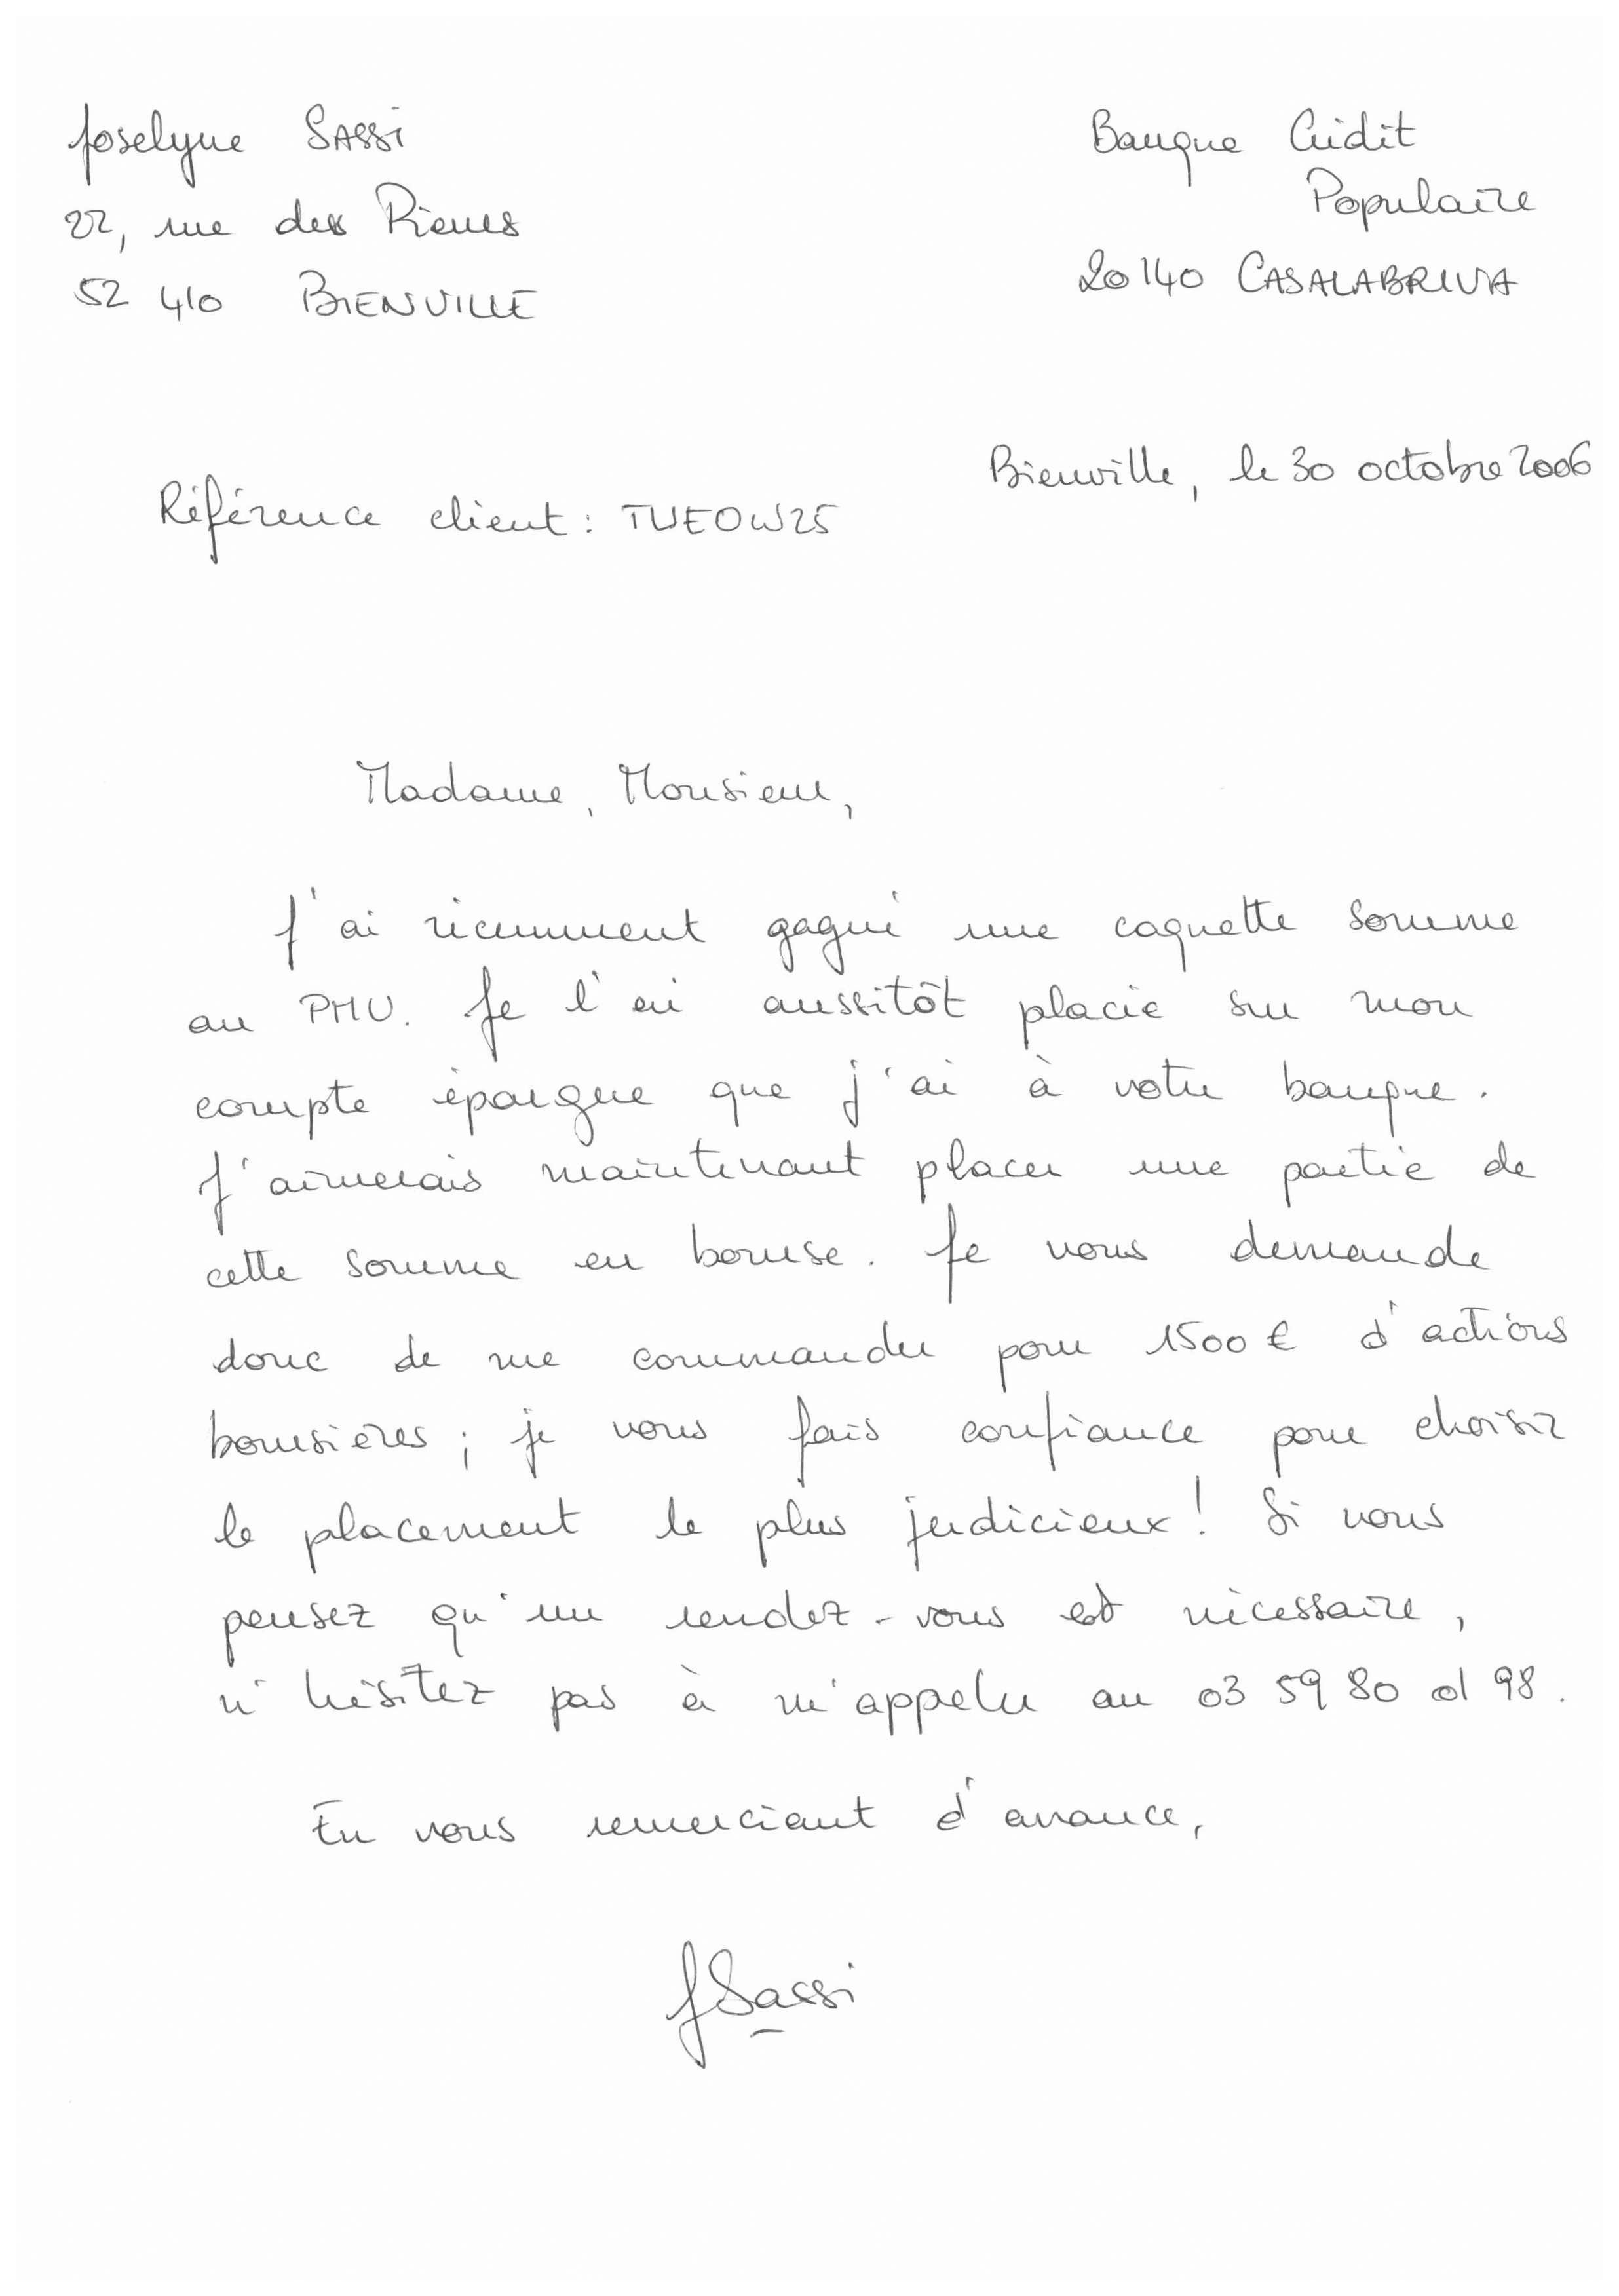 Joselyne SASSI
22, rue des Pierres
52 410 BIENVILLE
Banque Crédit
Populaire
20140 CASALABRIVA
Bienville, le 30 octobre 2006
Référence client : TUEOW25
Madame, Monsieur,
J'ai récemment gagné une coquette somme
au PMU. Je l'ai aussitôt placée sur mon
compte épargne que j'ai à votre banque.
J'aimerais maintenant placer une partie de
cette somme en bourse. Je vous demande
donc de me commander pour 1500 € d'actions
boursières ; je vous fais confiance pour choisir
le placement le plus judicieux ! Si vous
pensez qu'un rendez-vous est nécessaire,
n'hésitez pas à m'appeler au 03 59 80 01 98.
En vous remerciant d'avance,
JSassi